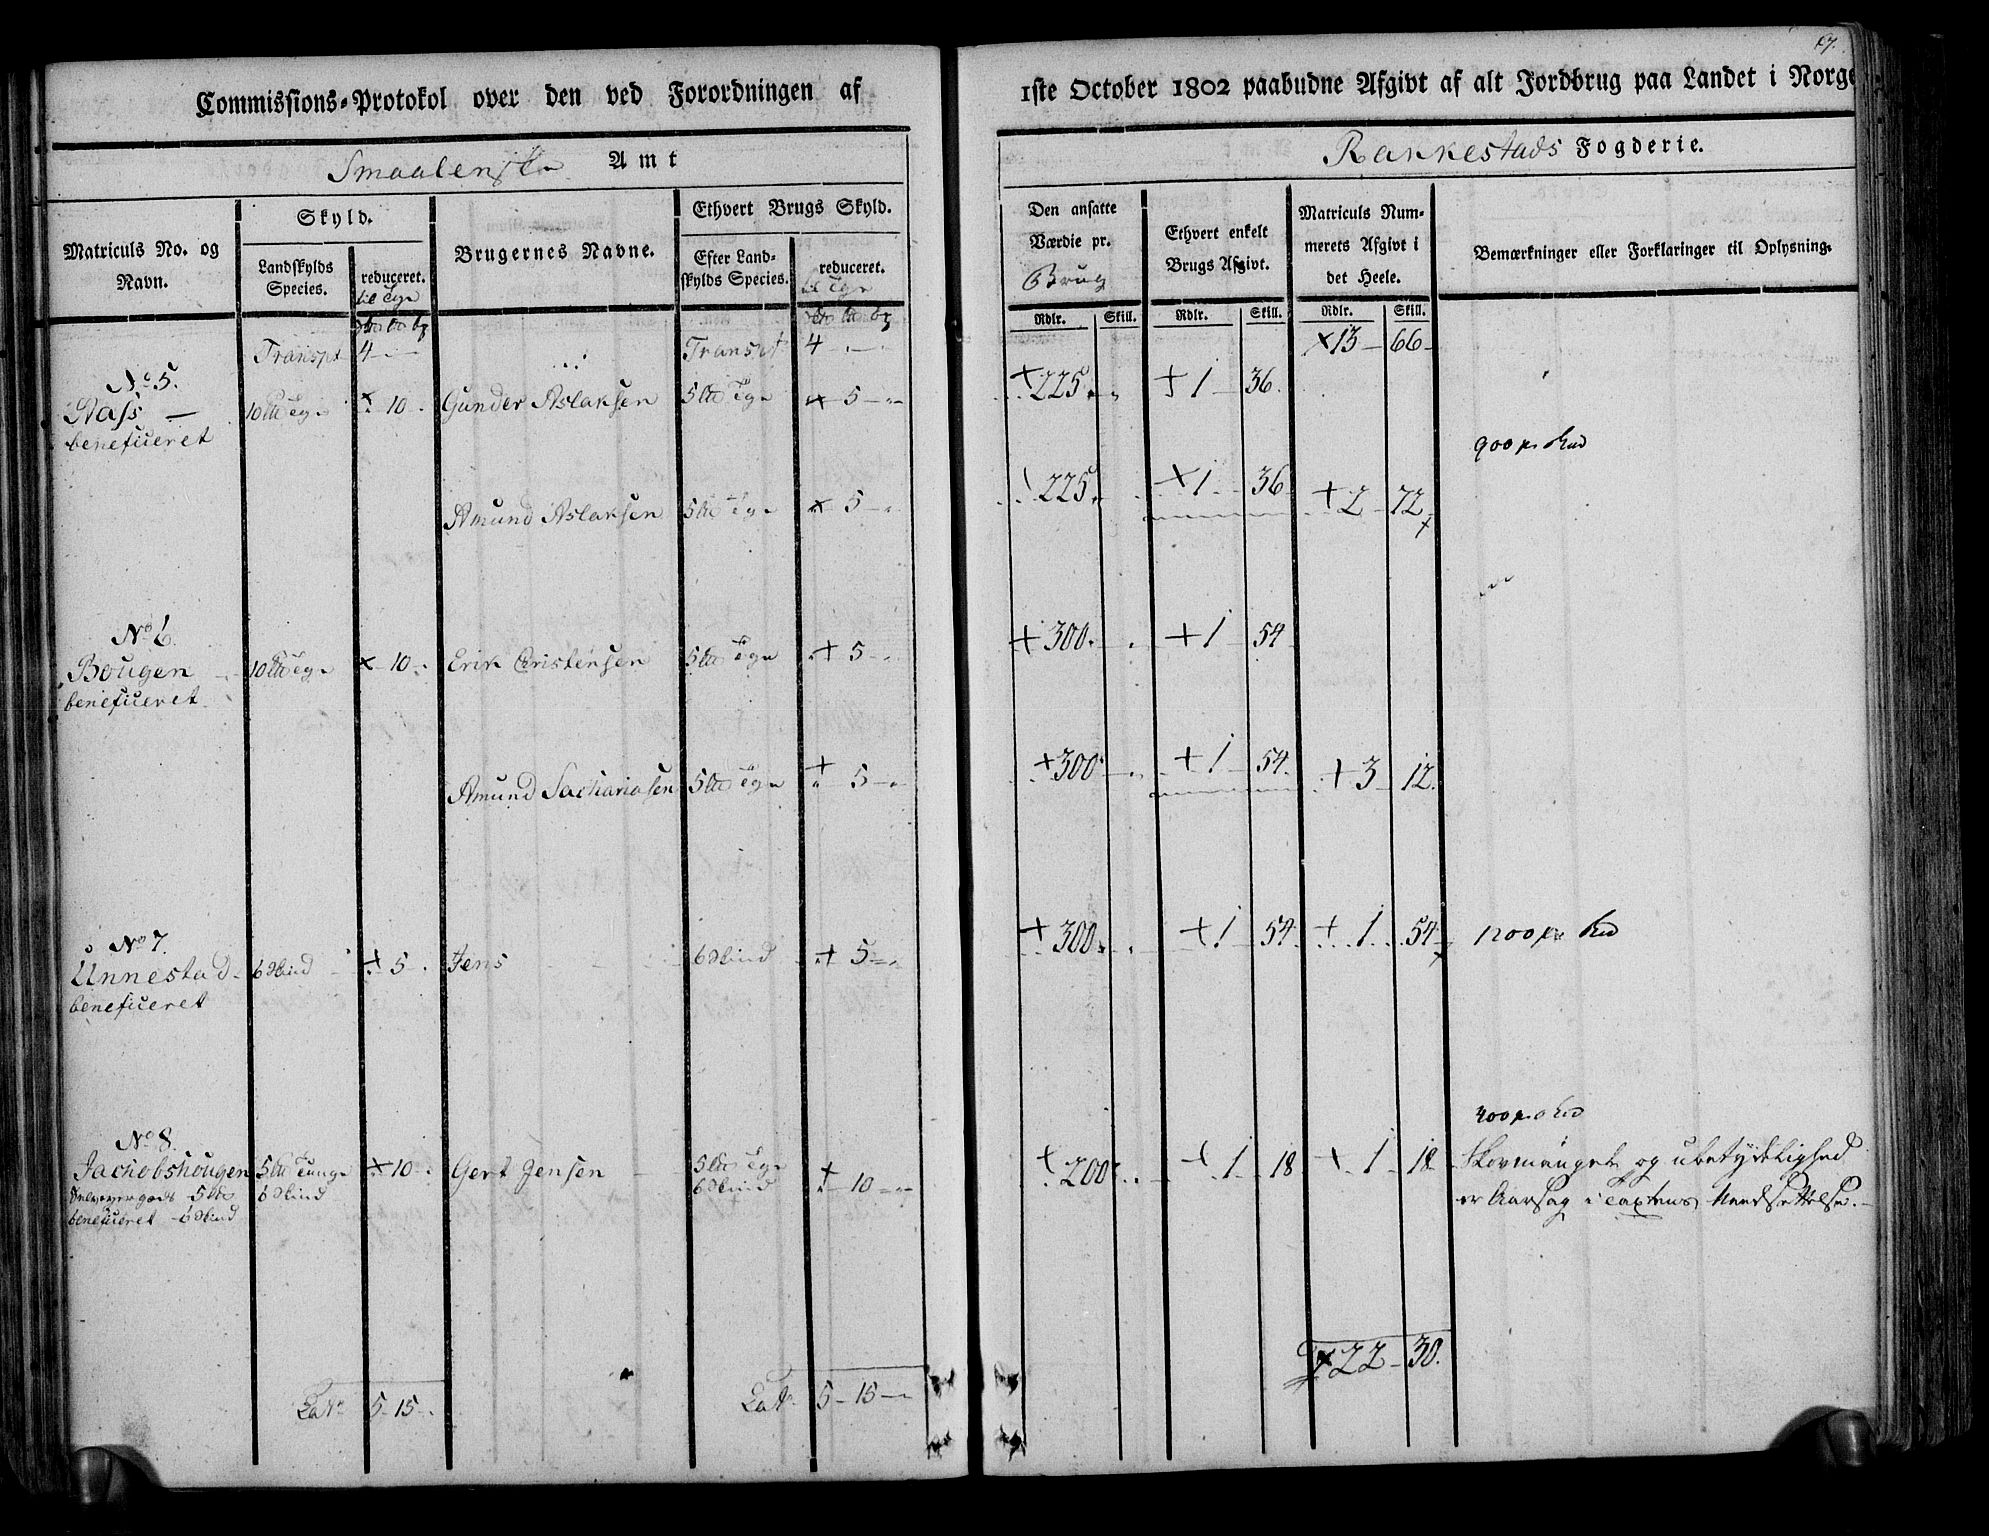 Commissions-Protokol over den ved Forordningen af
Smaalenske Amt
Matriculs No. og Navn.
Skyld.
Landskylds Species.
reduceret.
til Tge
Brugernes Navne.
Ethvert Brugs Skyld.
Efter Landskylds Species.
reduceret.
til Tge
Transpt 4 - - Transpt 4 - -
No 5.
Aass — 10 Tge × 10 Gunder Aslaksen 5 Tge × 5
beneficeret
Amund Aslaksen 5 Tge × 5
No 6.
Bougen 10 Tge × 10 Erik Christensen 5 Tge + 5
beneficeret
Amund Sachariasen 5 Tge + 5
No 7.
Unnestad 6 Skind + 5 Jens 6 Skind + 5
beneficeret
No 8.
Jachobshougen 5 Tunge × 10 Gert Jensen 5 Tge + 10
5 6 Skind 6 Skind
beneficeret - 6 Skind
Lat. 5 - 15 Lat. 5 - 15
1ste October 1802 paabudne Afgivt af alt Jordbrug paa Landet i Norge
Rakkestads Fogderie.
Den ansatte Værdie pr.
Brug
Rdlr. Skill.
Ethvert enkelt Brugs Afgivt.
Rdlr. Skill.
Matriculs Nummerets Afgivt i det Heele.
Rdlr. Skill.
Bemærkninger eller Forklaringer til Oplysning.
×13 - 66
+225 +1 - 36.
225 ×1 - 36 +2 - 72
+300 +1 - 54
+300 +1 - 54 +3 - 12.
+300 +1 - 54 +1 - 54 1200
+200 +1 - 18 +1 - 18 Skovmangel og ubetydelighed
er Aarsag i Taxtens Nedsættelse.
×22 - 30.